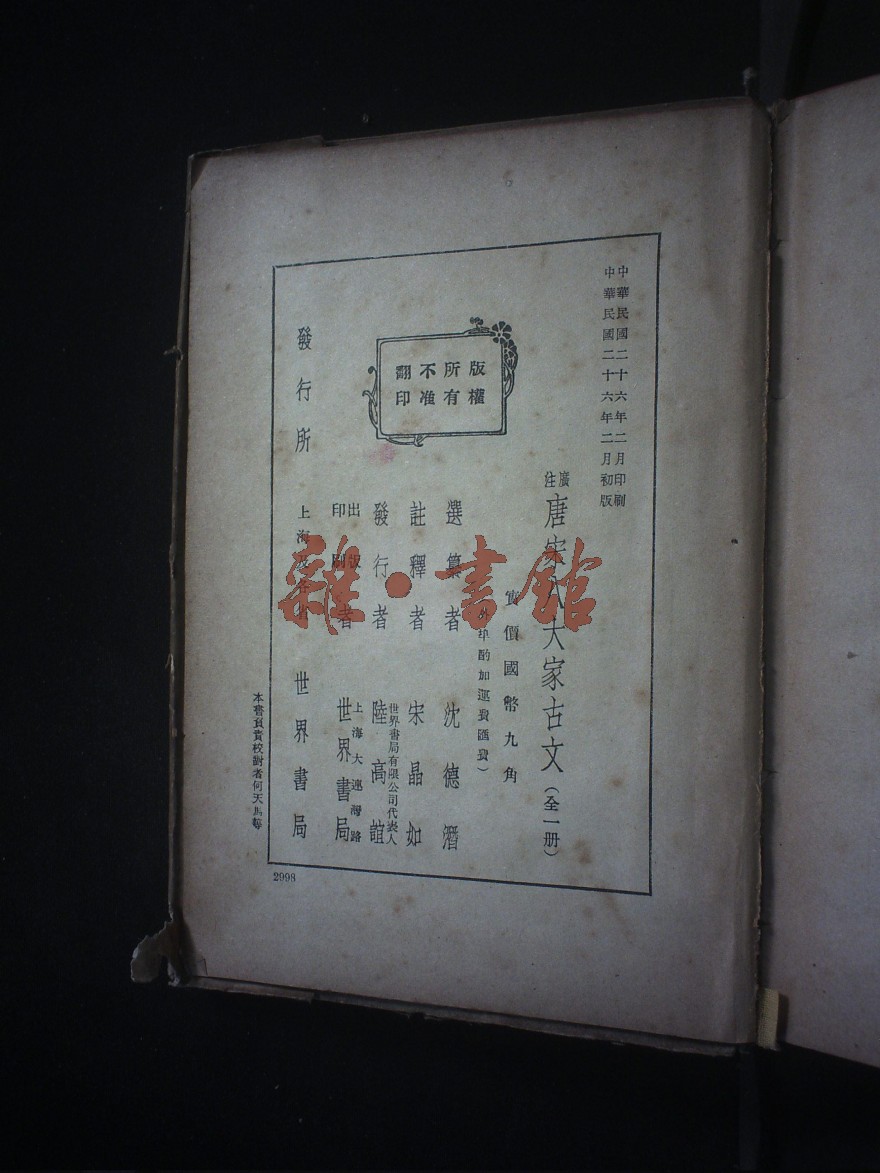 中華民國二十六年二月印刷
中華民國二十六年二月初版
廣注 唐宋八大家古文(全一册)
實價國幣九角
(外埠酌加運費匯費)
版權
所有
不准
翻印
選纂者 沈德潛
註釋者 宋晶如
發行者 世界書局有限公司代表人 陸高誼
出版者 印刷 上海大連灣路 世界書局
發行所 上海及各省 世界書局
本書負責校對者何天馬等
2998
雜·書館